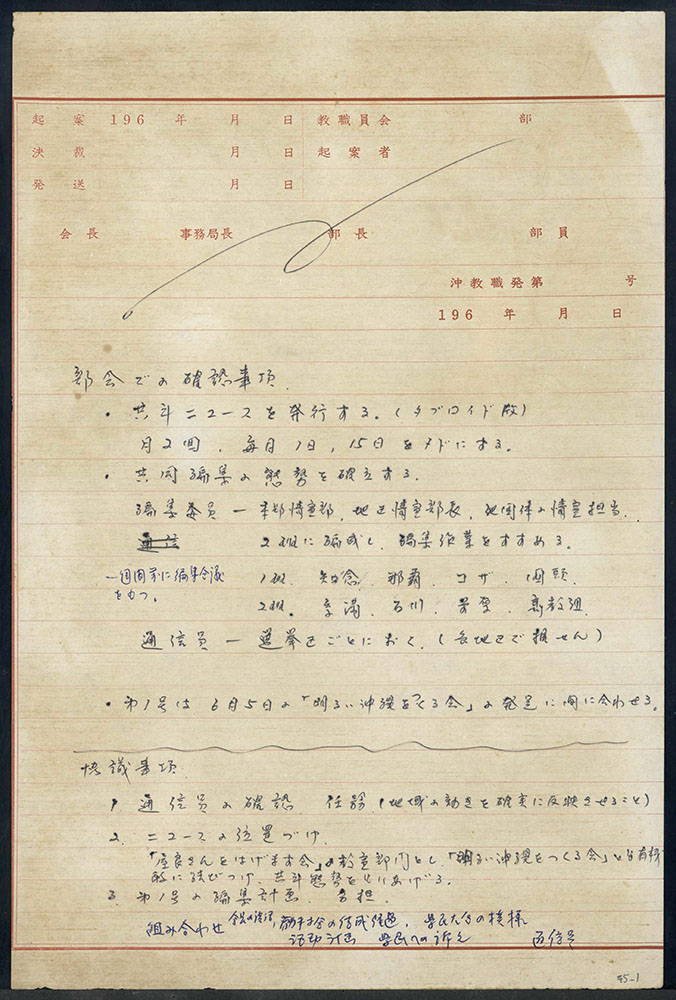 起案 196 年 月 日 教職員会 部
決裁 月 日 起案者
発送 月 日
会長 事務局長 部長 部員
沖教職発第 号
196 年 月 日
部会での確認事項.
・共斗ニュースを発行する。(タブロイド版)
月2回、毎月1日、15日をメドにする。
・共同編集の態勢を確立する.
編集委員 ー 本部情宣部、地区情宣部長、他団体の情宣担当.
通信 2班に編成し、編集作業をすすめる.
一週間前に編集会議
をもつ.
1班. 知念 那覇. コザ. 国頭
2班. 糸満. 石川. 普天. 高教組.
通信員 ー 選挙区ごとにおく.(各地区で推せん)
・第1号は6月5日の「明るい沖縄をつくる会」の発足に間に合わせる。
協議事項
1. 通信員の確認 任務(地域の動きを確実に反映させること)
2. ニュースの位置づけ.
「屋良さんをはげます会」の教宣部門とし、「明るい沖縄をつくる会」と有機
的に結びつけ、共斗態勢をもりあげる.
3. 第1号の編集計画. 分担.
組み合わせ の結成経過, 県民大会の模様
活動計画 県民への訴え 通信員
45-1